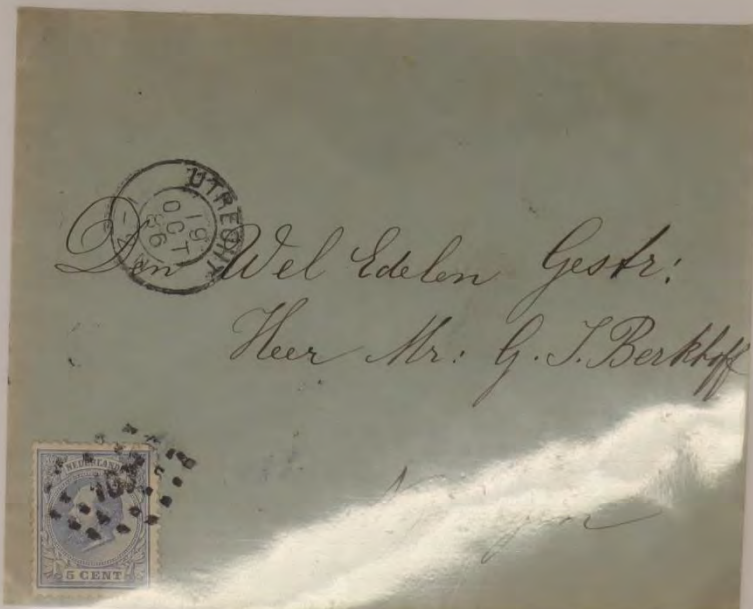 UTRECHT
19
OCT
86
Den Wel Edelen Gestr:
Heer Mr: G. J. Berkhoff
NEDERLAND
5 CENT